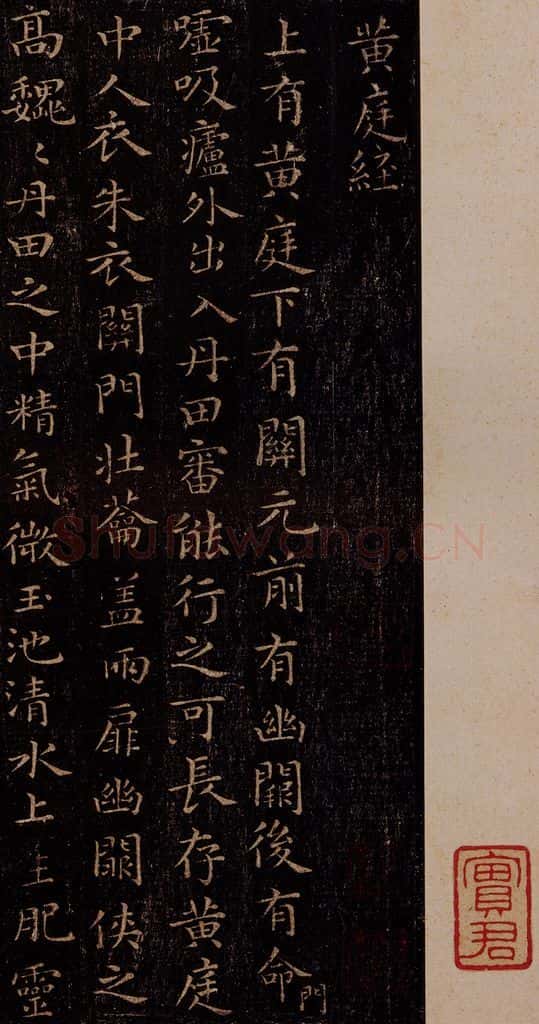 黄庭经
上有黄庭下有關元前有幽闕後有命門
嘘吸廬外出入丹田審能行之可長存黄庭
中人衣朱衣關門壮蘥盖兩扉幽闕侠之
高巍〻丹田之中精氣微玉池清水上生肥靈
Shufawang.CN
寶君